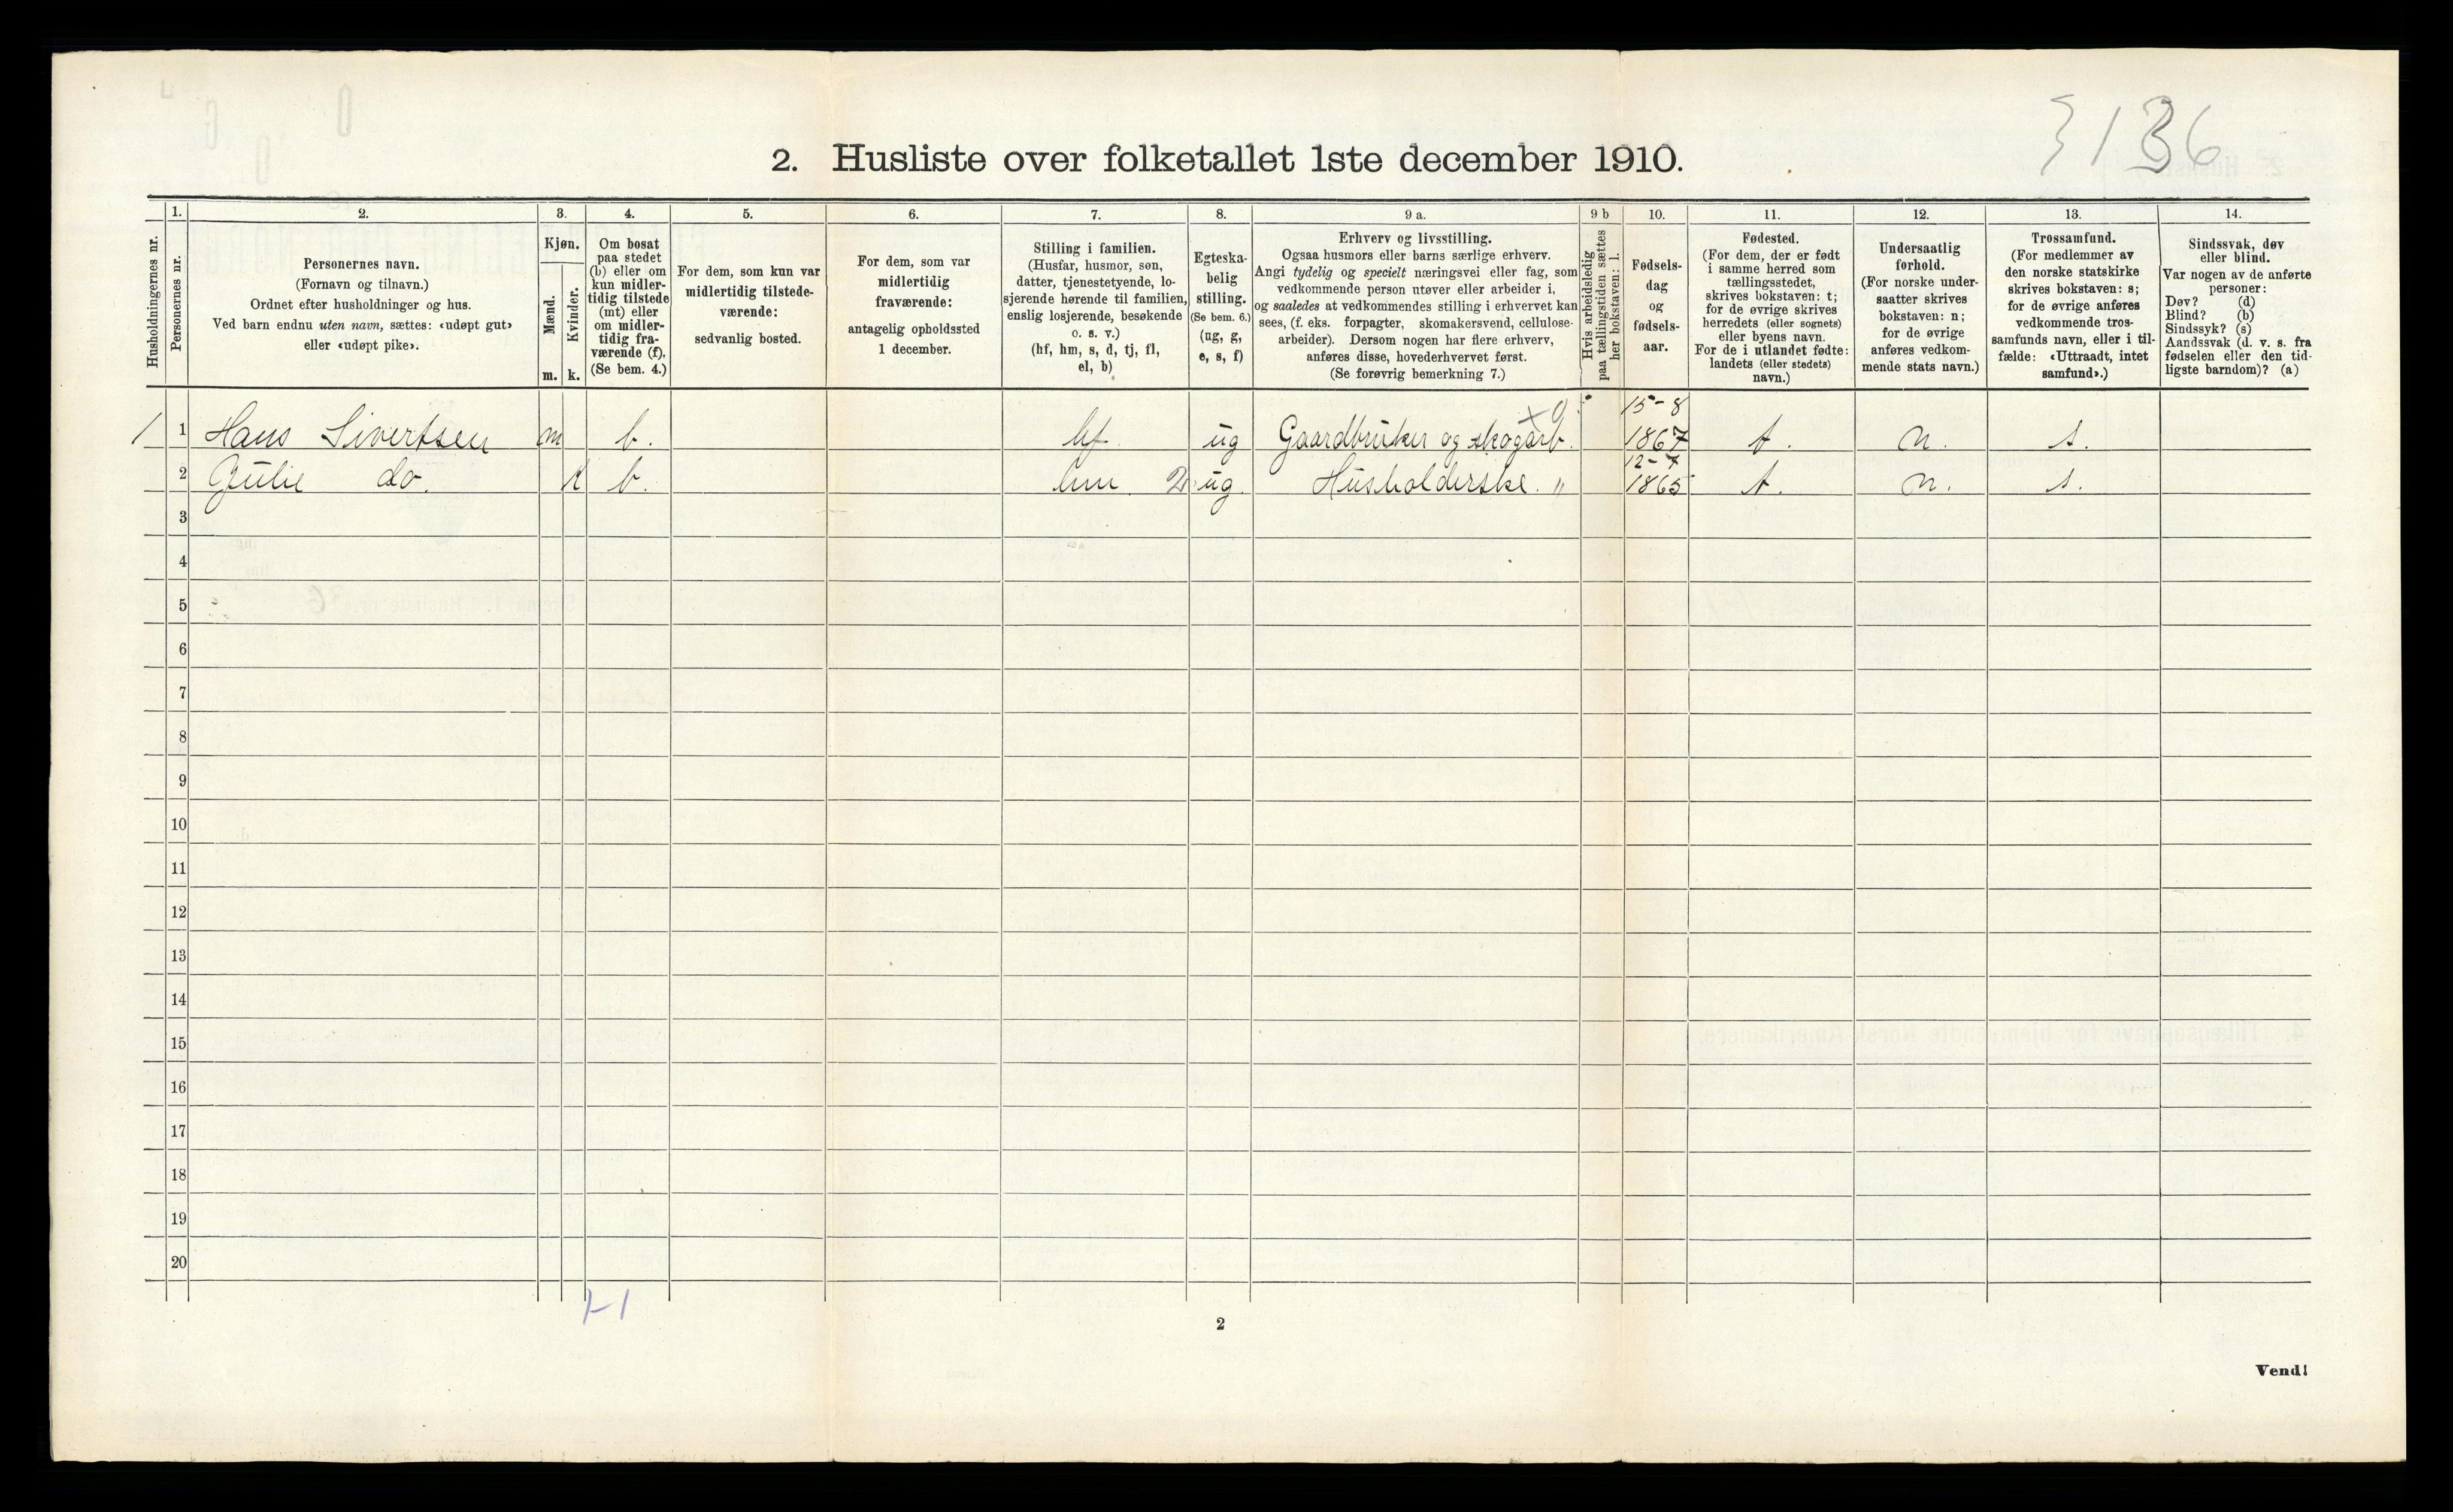 3136
2. Husliste over folketallet 1ste december 1910.
Husholdningernes nr.
1.
Personernes nr.
2.
Personernes navn.
(Fornavn og tilnavn.)
Ordnet efter husholdninger og hus.
Ved barn endnu uten navn, sættes: «udøpt gut»
eller «udøpt pike».
3.
Kjøn.
Mænd.
Kvinder.
m. k.
4.
Om bosat
paa stedet
(b) eller om
kun midler-
tidig tilstede
(mt) eller
om midler-
tidig fra-
værende (f).
(Se bem. 4.)
5.
For dem, som kun var
midlertidig tilstede-
værende:
sedvanlig bosted.
6.
For dem, som var
midlertidig
fraværende:
antagelig opholdssted
1 december.
7.
Stilling i familien.
(Husfar, husmor, søn,
datter, tjenestetyende, lo-
sjerende hørende til familien,
enslig losjerende, besøkende
o. s. v.)
(hf, hm, s, d, tj, fl,
el, b)
8.
Egteska-
belig
stilling.
(Se bem. 6.)
(ug, g,
e, s, f)
9 a.
Erhverv og livsstilling.
Ogsaa husmors eller barns særlige erhverv.
Angi tydelig og specielt næringsvei eller fag, som
vedkommende person utøver eller arbeider i,
og saaledes at vedkommendes stilling i erhvervet kan
sees, (f. eks. forpagter, skomakersvend, cellulose-
arbeider). Dersom nogen har flere erhverv,
anføres disse, hovederhvervet først.
(Se forøvrig bemerkning 7.)
9 b
Hvis arbeidsledig
paa tællingstiden sættes
her bokstaven: l.
10.
Fødsels-
dag
og
fødsels-
aar.
11.
Fødested.
(For dem, der er født
i samme herred som
tællingsstedet,
skrives bokstaven: t;
for de øvrige skrives
herredets (eller sognets)
eller byens navn.
For de i utlandet fødte:
landets (eller stedets)
navn.)
12.
Undersaatlig
forhold.
(For norske under-
saatter skrives
bokstaven: n;
for de øvrige
anføres vedkom-
mende stats navn.)
13.
Trossamfund.
(For medlemmer av
den norske statskirke
skrives bokstaven: s;
for de øvrige anføres
vedkommende tros-
samfunds navn, eller i til-
fælde: «Uttraadt, intet
samfund».)
14.
Sindssvak, døv
eller blind.
Var nogen av de anførte
personer:
Døv? (d)
Blind? (b)
Sindssyk? (s)
Aandssvak (d. v. s. fra
fødselen eller den tid-
ligste barndom)? (a)
15-8
1 1 Hans Sivertsen m b. hf. ug Gaardbruker og skogarb. 1867 t. n. s.
12-7
2 Julie do. k b. hm 2 ug. Husholderske. " 1865 t. n. s.
3
4
5
6
7
8
9
10
11
12
13
14
15
16
17
18
19
20
1-1
2
Vend!